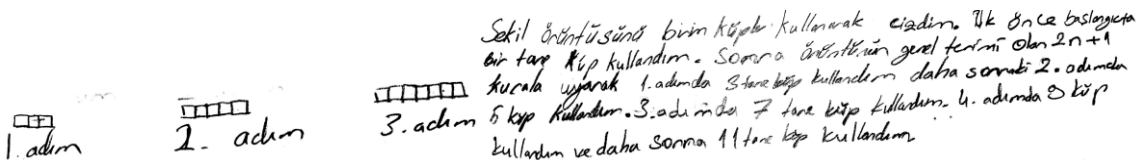 Şekil örüntüsünü birim küpler kullanarak çizdim. İlk önce başlangıçta
bir tane küp kullandım. Sonra örüntünün genel terimi olan 2n+1
kurala uyarak 1. adımda 3 tane küp kullandım daha sonraki 2. adımda
5 küp kullandım. 3. adımda 7 tane küp kullandım. 4. adımda 9 küp
kullandım ve daha sonra 11 tane küp kullandım
1. adım
2. adım
3. adım